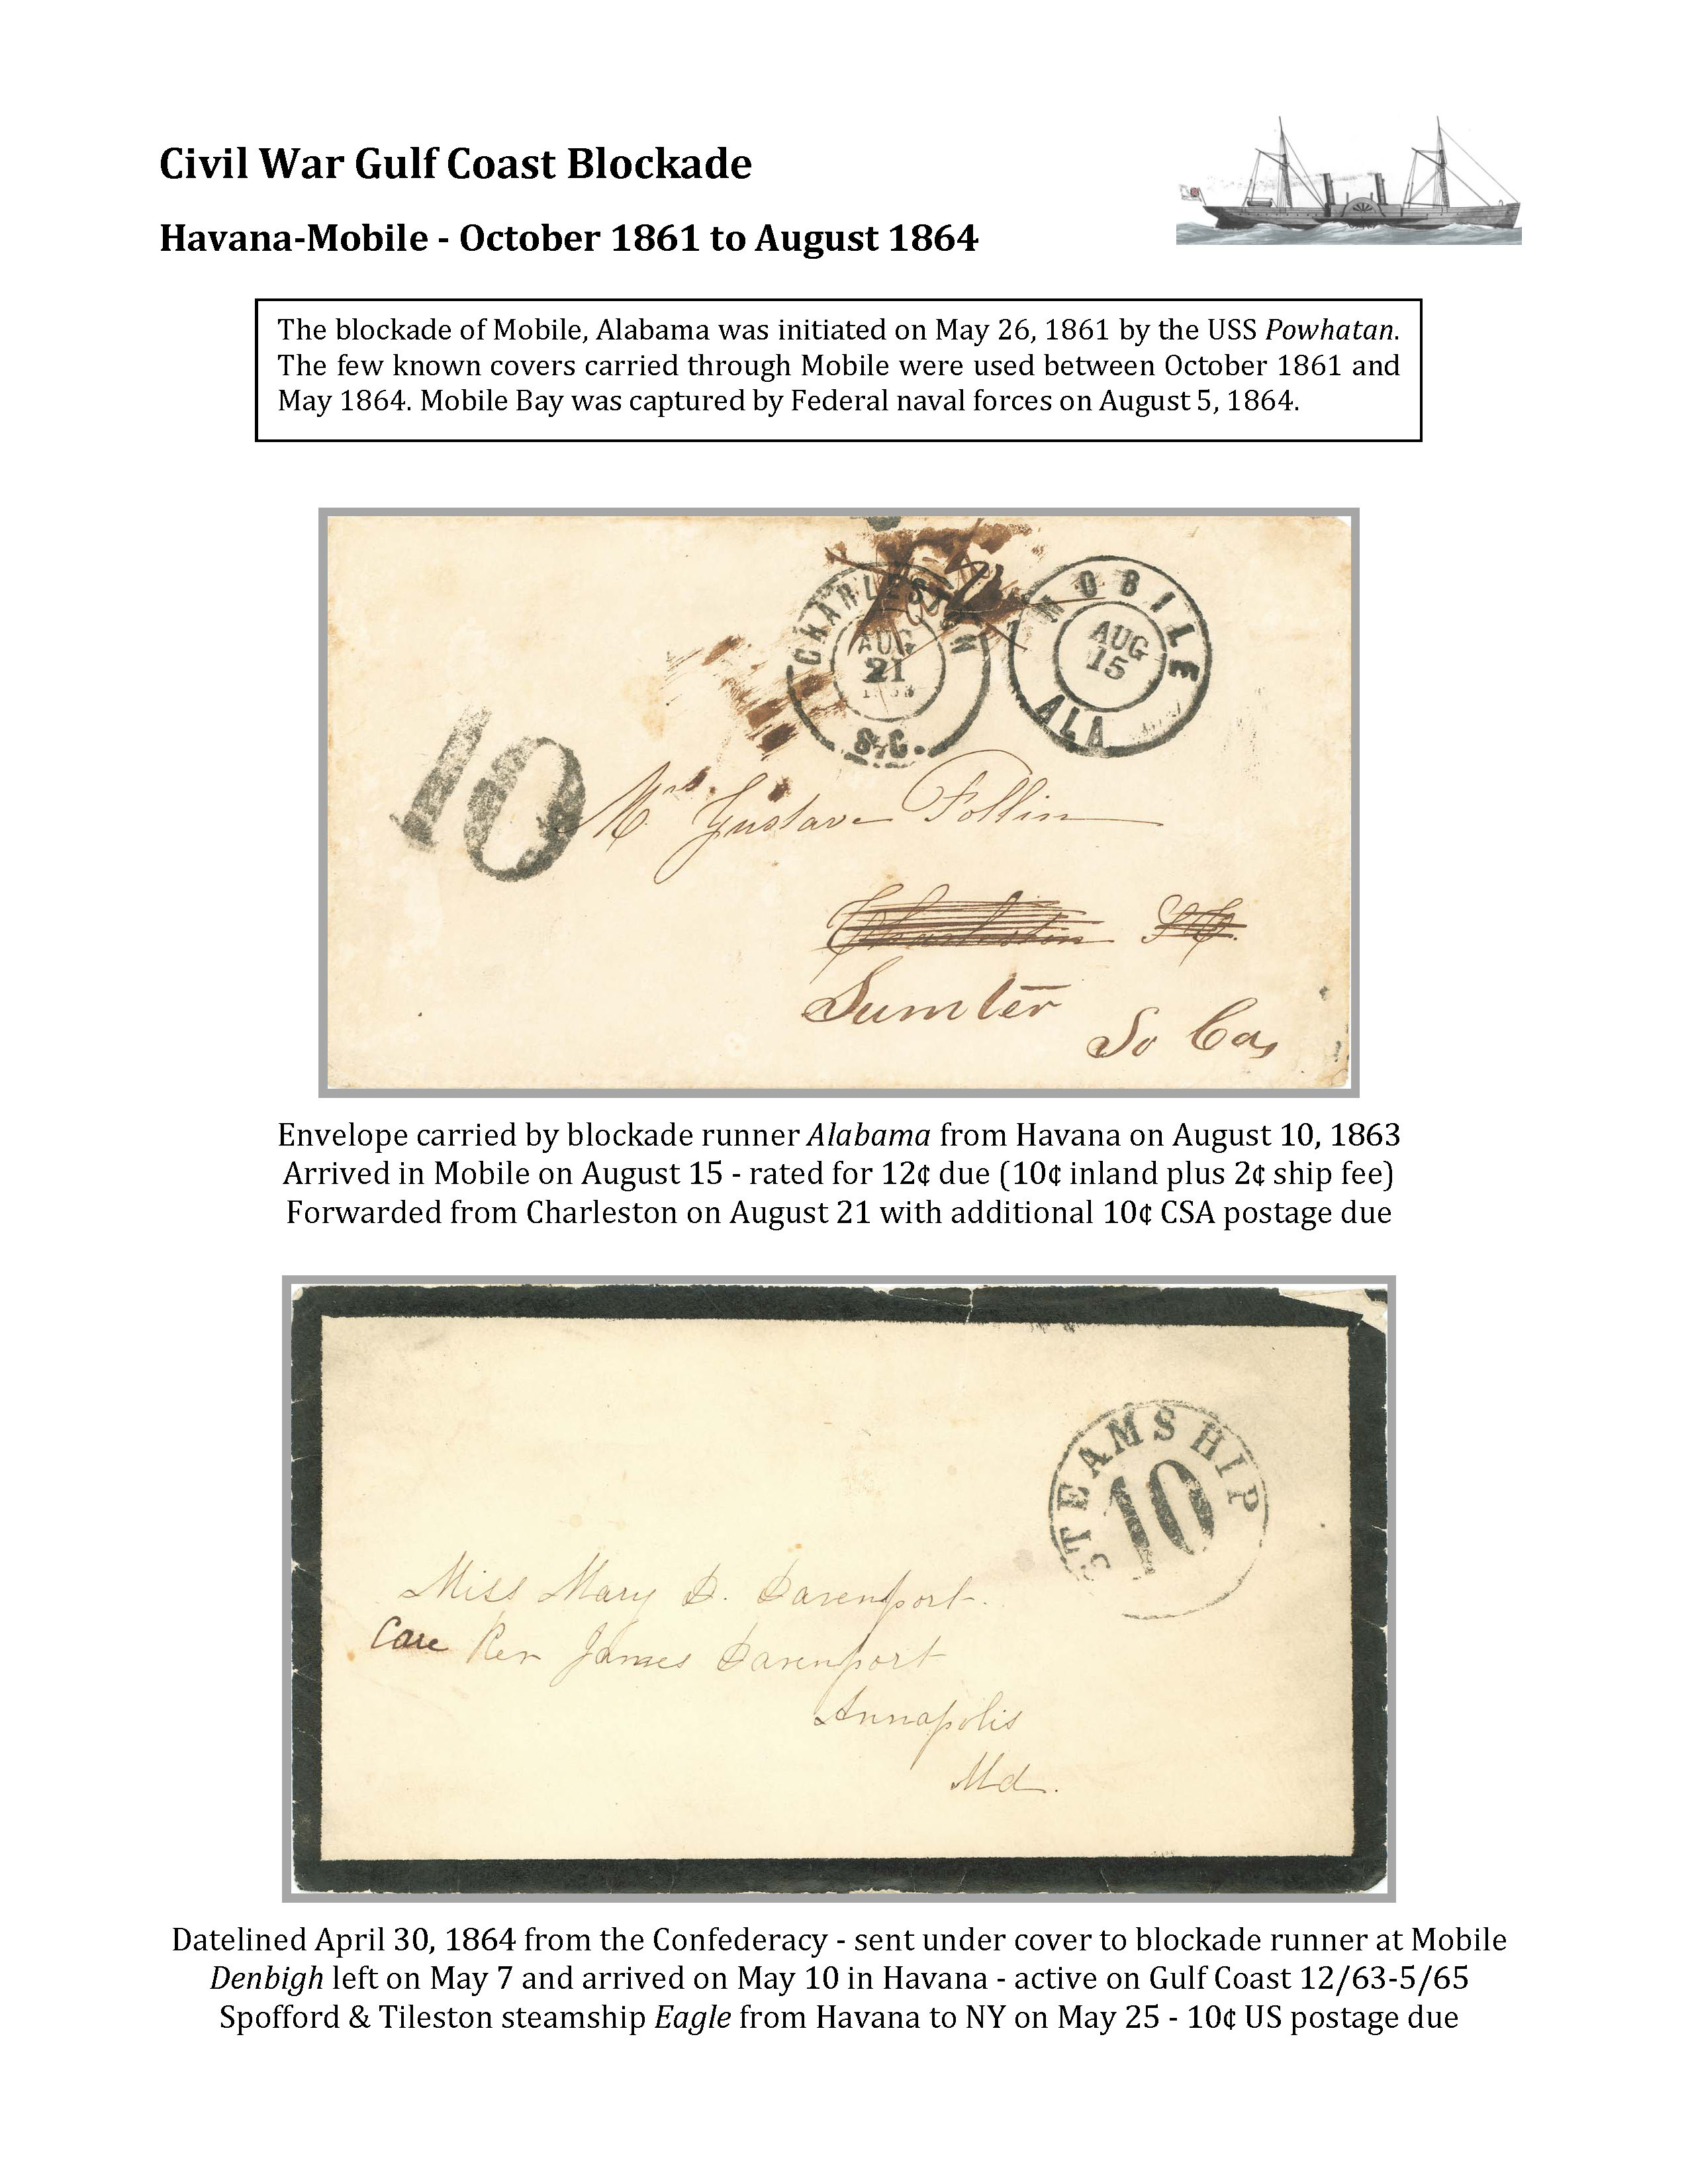 Civil War Gulf Coast Blockade
Havana-Mobile - October 1861 to August 1864
The blockade of Mobile, Alabama was initiated on May 26, 1861 by the USS Powhatan.
The few known covers carried through Mobile were used between October 1861 and
May 1864. Mobile Bay was captured by Federal naval forces on August 5, 1864.
CHARLESTON
AUG
21
S.C.
MOBILE
AUG
15
ALA
10
Mrs Gustave Follin
Charleston SC.
Sumter
So Ca,
Envelope carried by blockade runner Alabama from Havana on August 10, 1863
Arrived in Mobile on August 15 - rated for 12¢ due (10¢ inland plus 2¢ ship fee)
Forwarded from Charleston on August 21 with additional 10¢ CSA postage due
STEAMSHIP
10
Miss Mary D. Davenport.
Care Rev James Davenport
Annapolis
Md.
Datelined April 30, 1864 from the Confederacy - sent under cover to blockade runner at Mobile
Denbigh left on May 7 and arrived on May 10 in Havana - active on Gulf Coast 12/63-5/65
Spofford & Tileston steamship Eagle from Havana to NY on May 25 - 10¢ US postage due